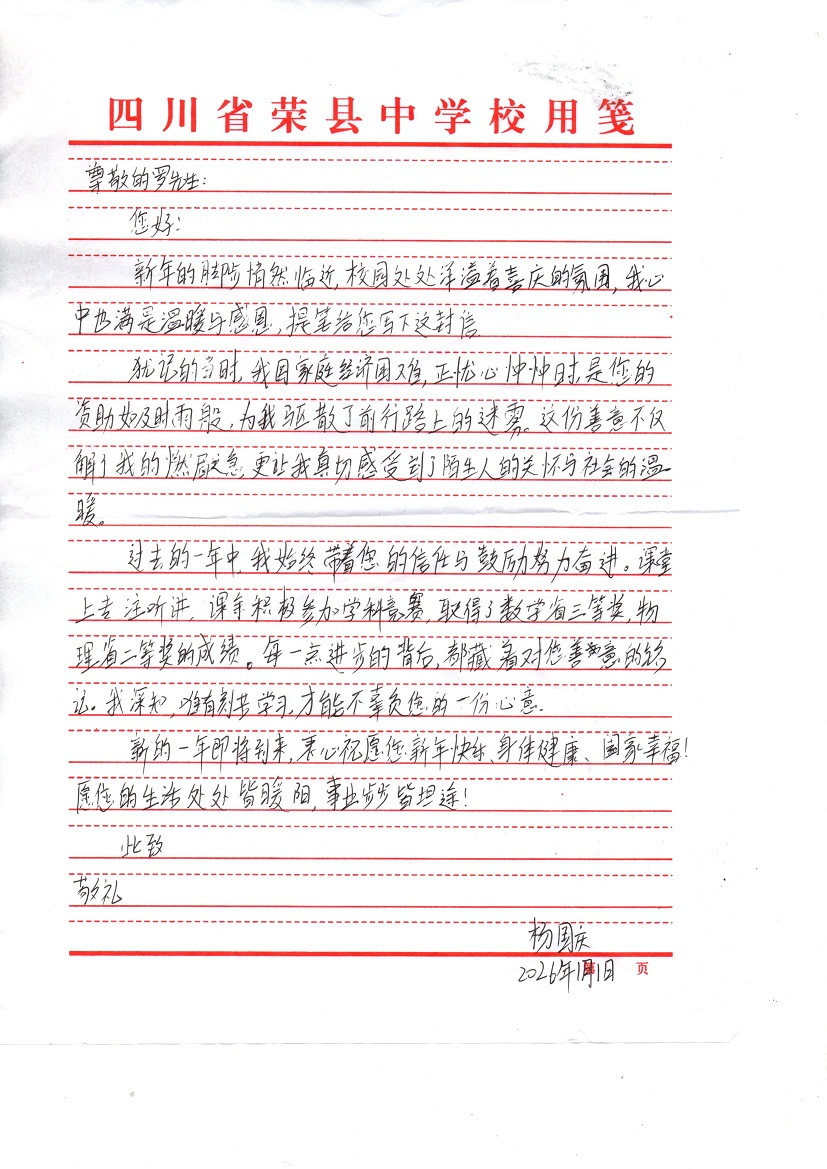 四川省荣县中学校用笺
尊敬的罗先生:
您好:
新年的脚步悄然临近,校园处处洋溢着喜庆的氛围,我心
中也满是温暖与感恩,提笔给您写下这封信
犹记的当时,我因家庭经济困难,正忧心忡忡时,是您的
资助如及时雨般,为我驱散了前行路上的迷雾。这份善意不仅
解了我的燃眉之急,更让我真切感受到了陌生人的关怀与社会的温
暖。
过去的一年中,我始终带着您的信任与鼓励努力奋进。课堂
上专注听讲,课余积极参加学科竞赛,取得了数学省三等奖,物
理省二等奖的成绩。每一点进步的背后,都藏着对您善意的铭
记。我深知,唯有刻苦学习,才能不辜负您的一份心意.
新的一年即将到来,衷心祝愿您新年快乐、身体健康、阖家幸福!
愿您的生活处处皆暖阳,事业步步皆坦途!
此致
敬礼
杨国庆
2026年1月1日
页